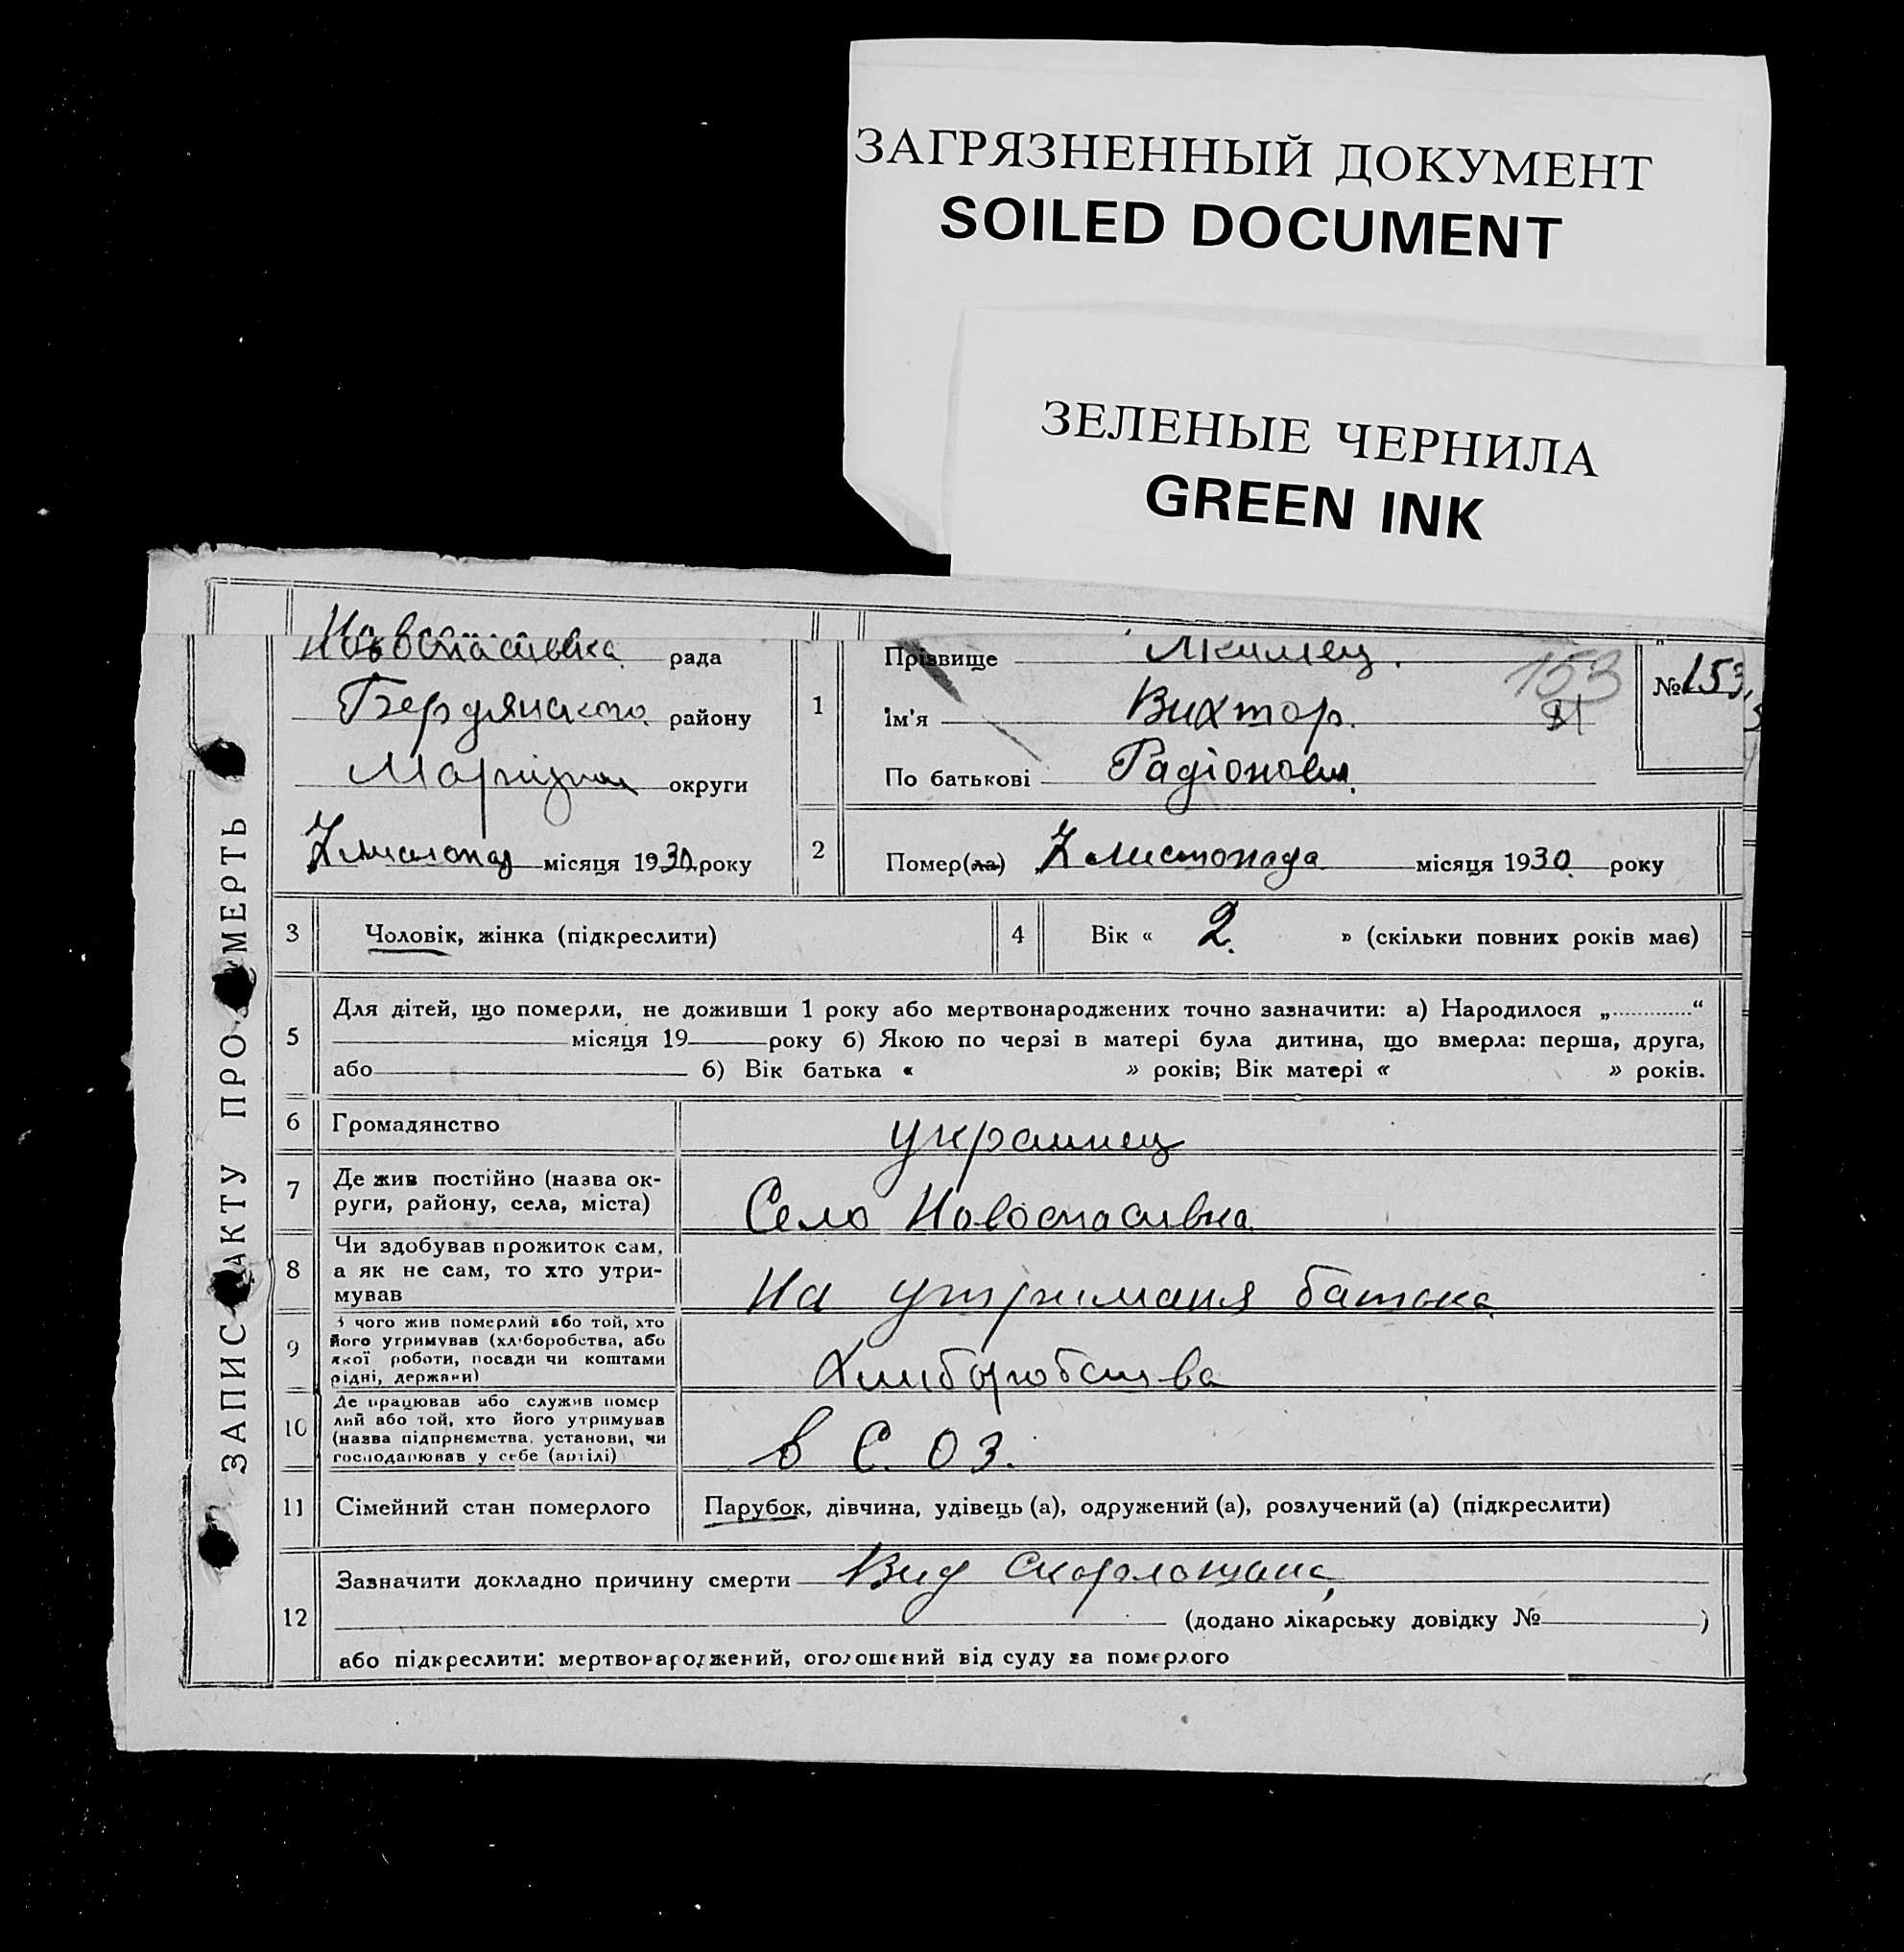 ЗАГРЯЗНЕННЫЙ ДОКУМЕНТ
SOILED DOCUMENT
ЗЕЛЕНЫЕ ЧЕРНИЛА
GREEN INK
ЗАПИС АКТУ ПРО СМЕРТЬ
Новоспасівка рада
Бердянского району
округи
7 листопад місяця 1930 року
1
Прізвище
Ім'я Вихтор.
По батькові Радіонович
153
XI
№ 153
2
Помер(ла) 7 листопада місяця 1930 року
3 Чоловік, жінка (підкреслити)
4 Вік « 2. » (скільки повних років має)
5 Для дітей, що померли, не доживши 1 року або мертвонароджених точно зазначити: а) Народилося „ “
місяця 19 року б) Якою по черзі в матері була дитина, що вмерла: перша, друга,
або б) Вік батька « » років; Вік матері « » років.
6 Громадянство украинец
7 Де жив постійно (назва ок-
руги, району, села, міста) Село Новоспасивка
8 Чи здобував прожиток сам,
а як не сам, то хто утри-
мував На утриманя батька
9 З чого жив померлий або той, хто
його утримував (хліборобства, або
якої роботи, посади чи коштами
рідні, держави) Хлиборобства
10 Де працював або служив помер
лий або той, хто його утримував
(назва підприємства, установи, чи
господарював у себе (артілі) в С. О З.
11 Сімейний стан померлого Парубок, дівчина, удівець (а), одружений (а), розлучений (а) (підкреслити)
12 Зазначити докладно причину смерти Вид
(додано лікарську довідку № )
або підкреслити: мертвонароджений, оголошений від суду за померлого